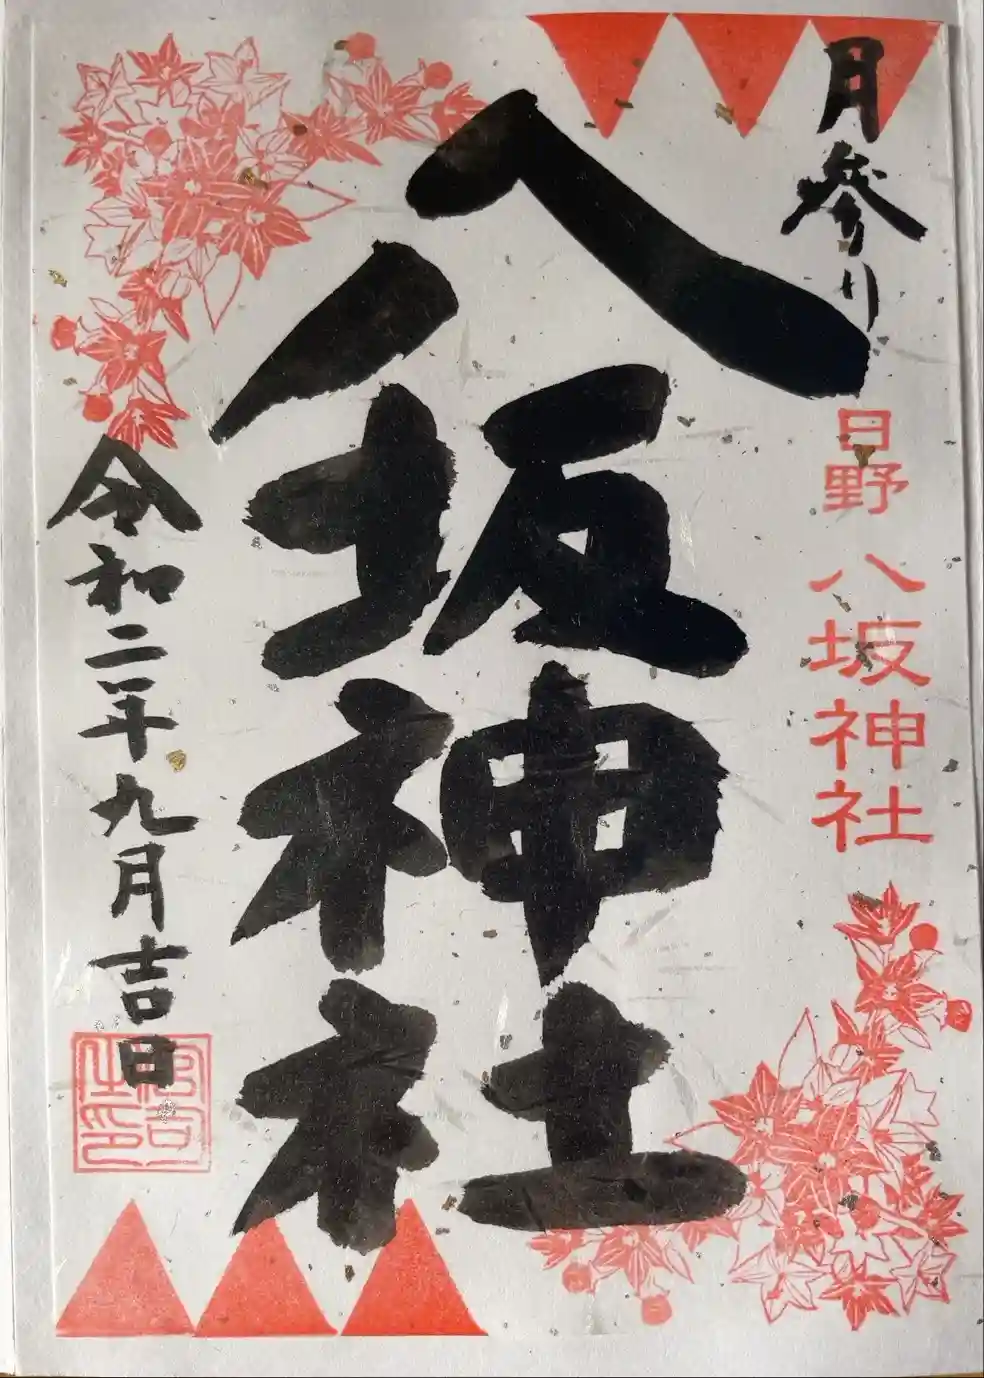 月参り
日野 八坂神社
八坂神社
令和二年九月吉日
宮司之印